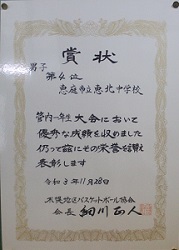 賞状
男子
第4位
恵庭市立恵北中学校
管内一年生大会において
優秀な成績を収めました
仍って茲にその栄誉を讃え
表彰します
令和3年11月28日
地区バスケットボール協会
会長 細川 正人